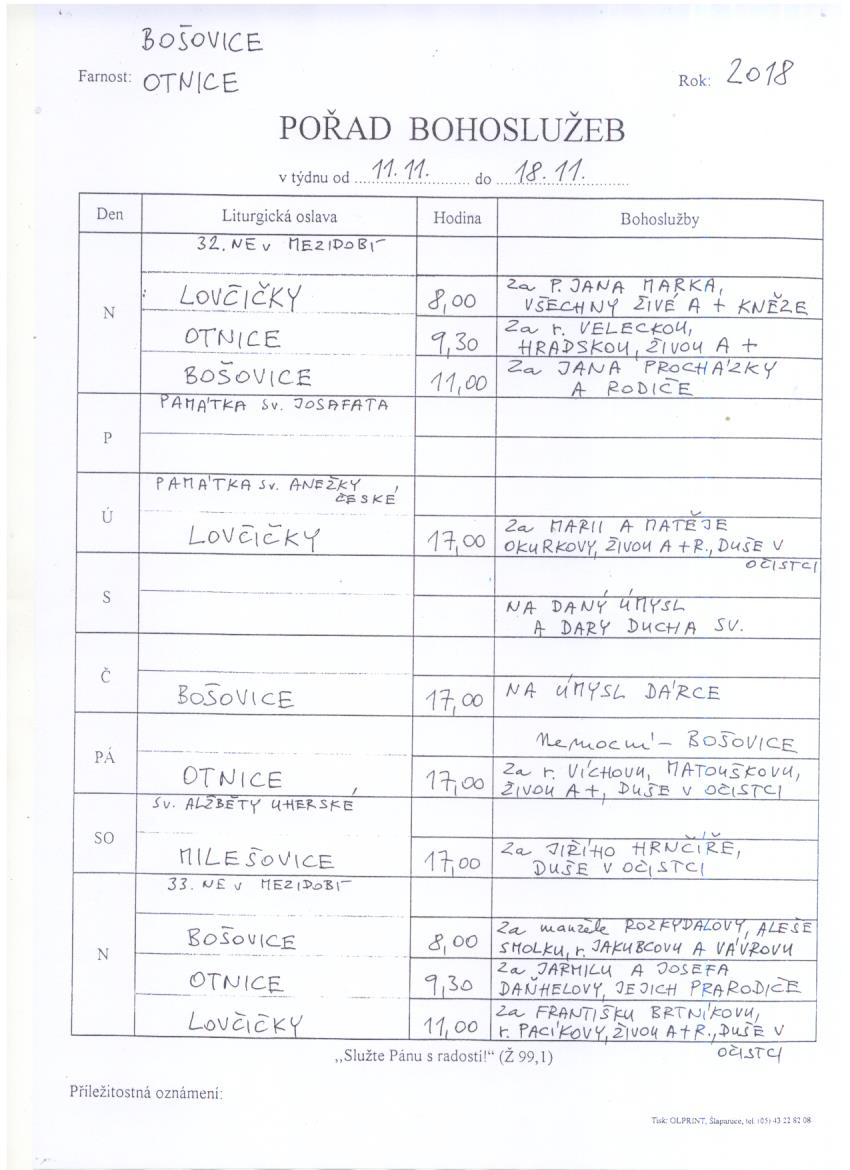 BOŠOVICE
Farnost: OTNICE Rok: 2018
POŘAD BOHOSLUŽEB
v týdnu od 11.11. do 18.11.
Den Liturgická oslava Hodina Bohoslužby
32. NE V MEZIDOBÍ
N
LOVČIČKY 8,00 Za P. JANA MARKA,
VŠECHNY ŽIVÉ A + KNĚŽE
OTNICE 9,30 Za r. VELECKOU,
HRADSKOU, ŽIVOU A +
BOŠOVICE 11,00 Za JANA PROCHÁZKY
A RODIČE
PAMÁTKA SV. JOSAFATA
P
PAMÁTKA SV. ANEŽKY
ČESKÉ
Ú
LOVČIČKY 17,00 Za MARII A MATĚJE
OKURKOVY, ŽIVOU A + R., DUŠE V
OČISTCI
S
NA DANÝ ÚMYSL
A DARY DUCHA SV.
Č
BOŠOVICE 17,00 NA ÚMYSL DÁRCE
PÁ
Nemocní - BOŠOVICE
OTNICE 17,00 Za r. VÍCHOVU, MATOUŠKOVU,
ŽIVOU A +, DUŠE V OČISTCI
SV. ALŽBĚTY UHERSKÉ
SO
MILEŠOVICE 17,00 Za JIŘÍHO HRNČÍŘE,
DUŠE V OČISTCI
33. NE V MEZIDOBÍ
N
BOŠOVICE 8,00 Za manžele ROZKYDALOVY, ALEŠE
SMOLKU, r. JAKUBCOVU A VÁVROVU
OTNICE 9,30 Za JARMILU A JOSEFA
DAŇHELOVY, JEJICH PRARODIČE
LOVČIČKY 11,00 Za FRANTIŠKU BRTNÍKOVU,
r. PACÍKOVY, ŽIVOU A + R., DUŠE V
OČISTCI
„Služte Pánu s radostí!“ (Ž 99,1)
Příležitostná oznámení:
Tisk: OLPRINT, Šlapanice, tel. (05) 43 22 82 08